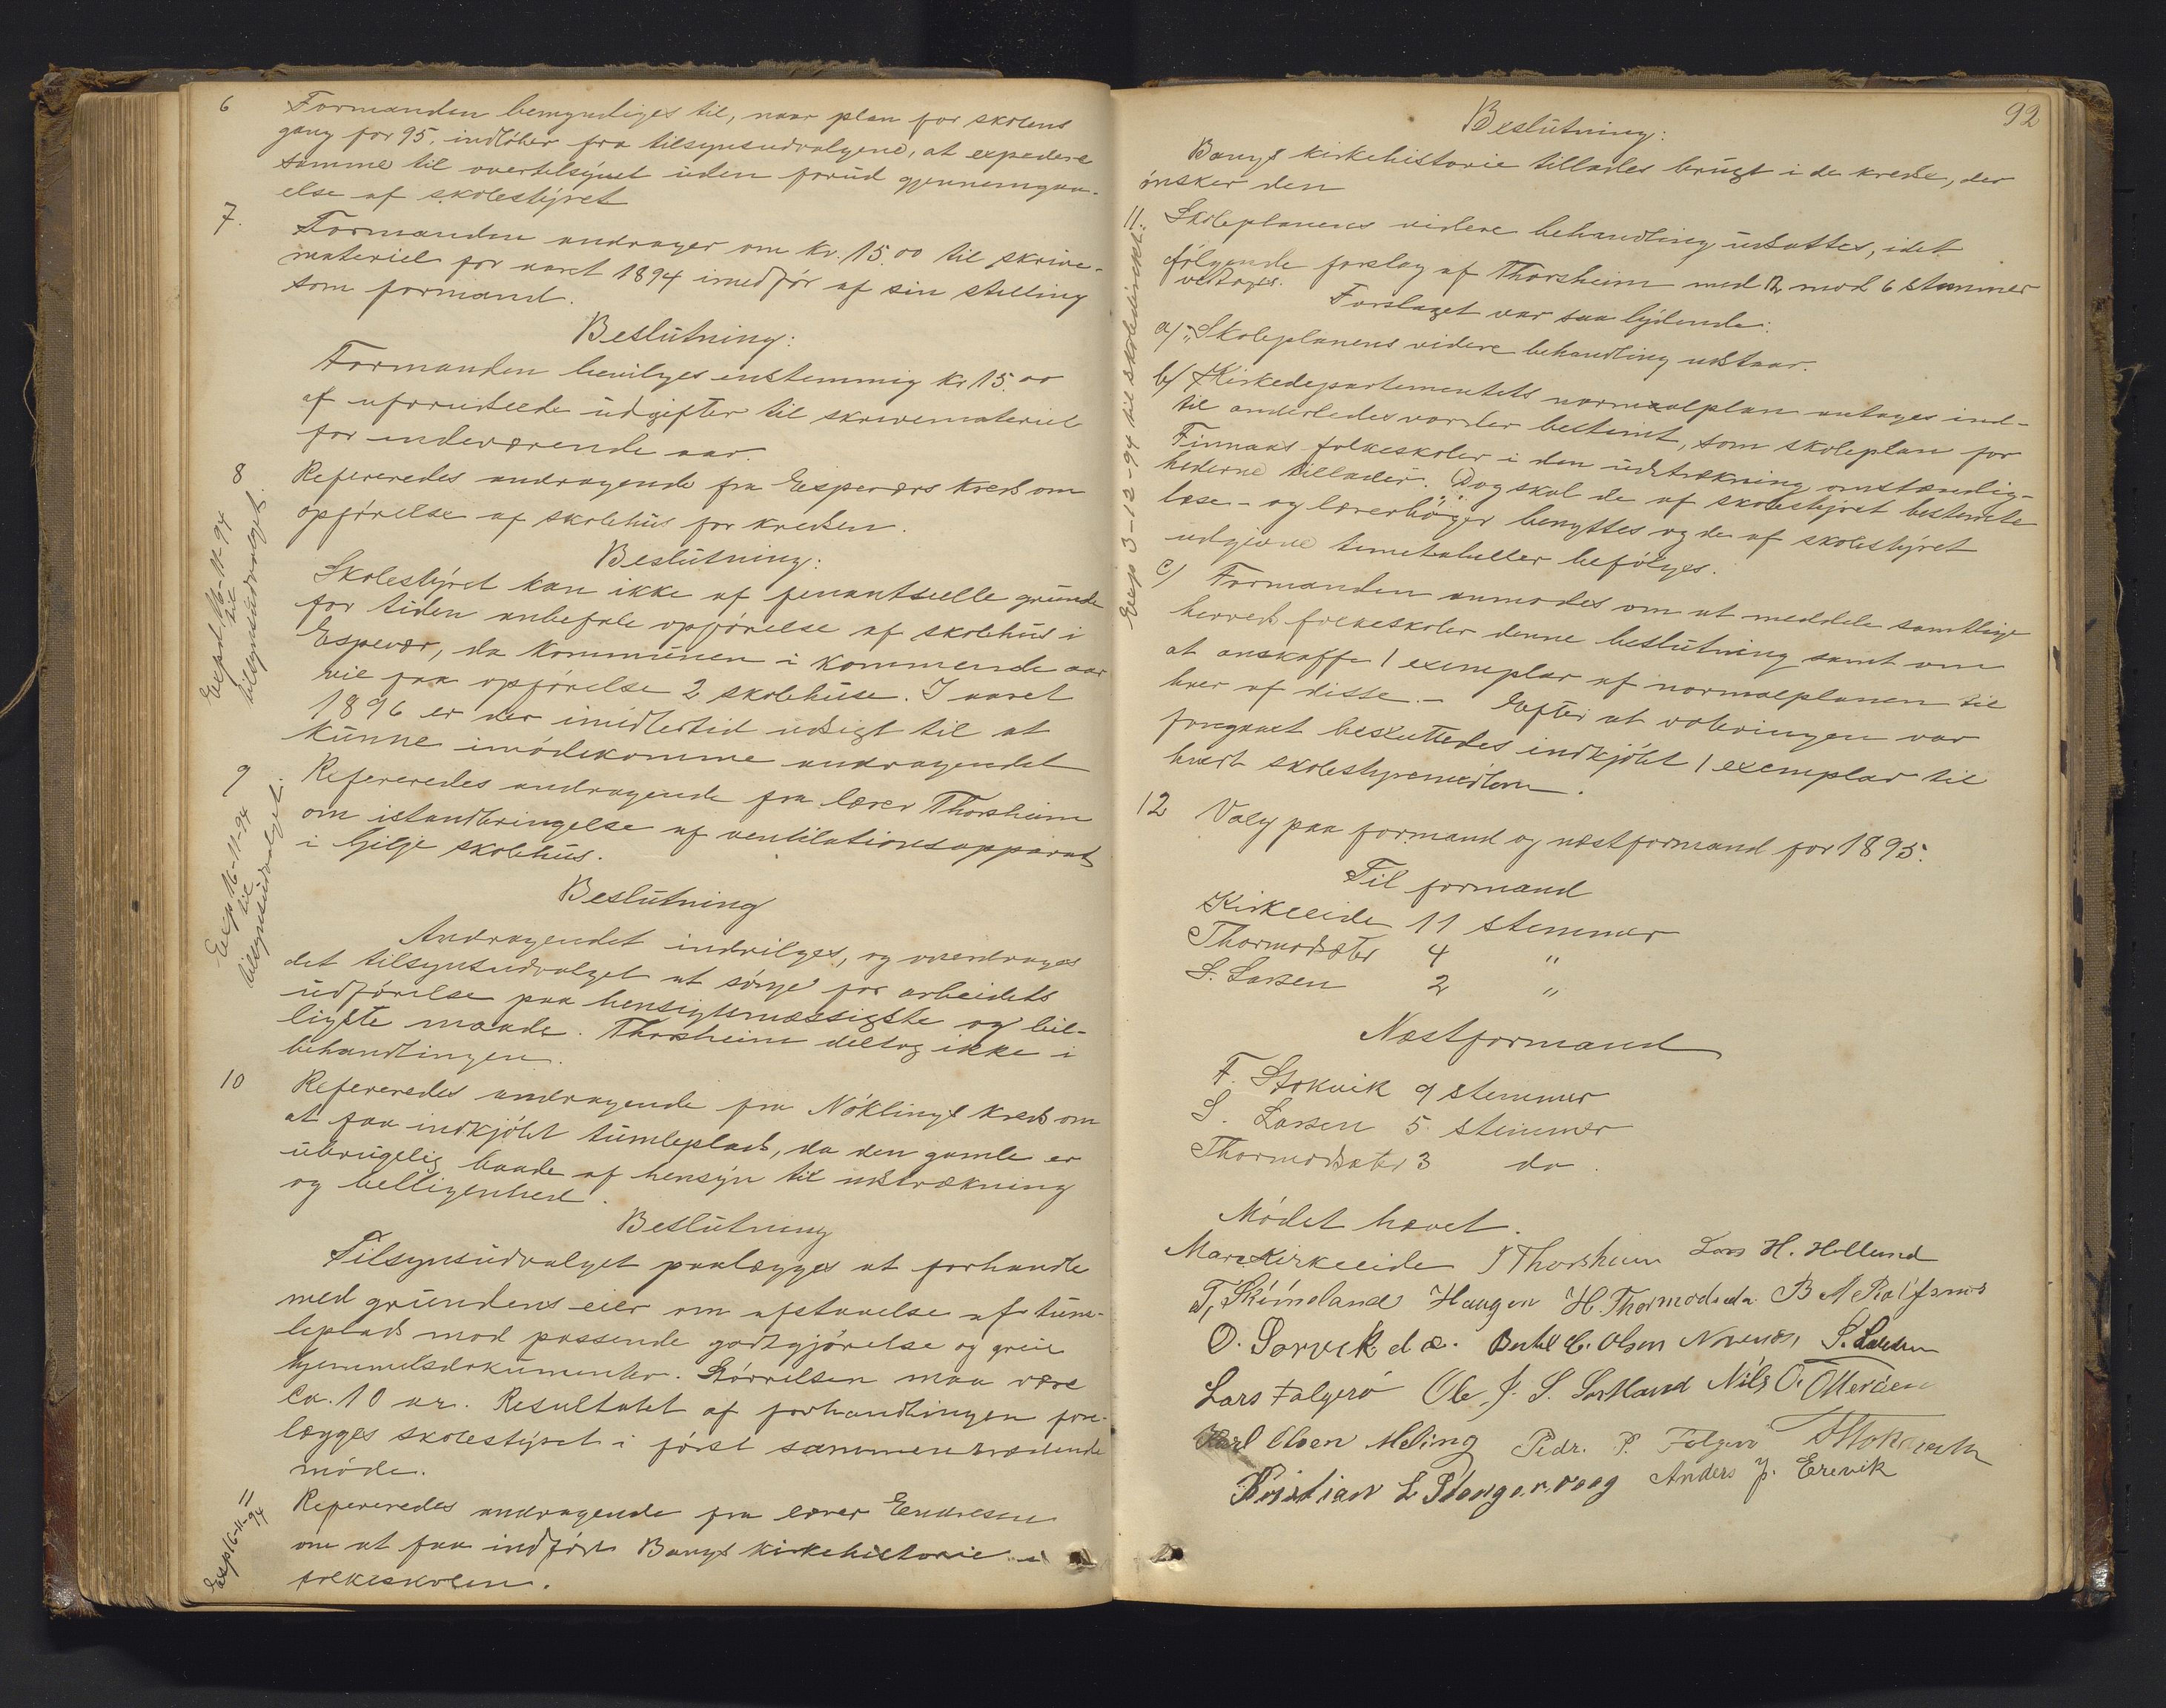 6 Formanden bemyndiges til, naar plan for skolens
gang for 95, indløber fra tilsynsudvalgene, at expedere
samme til overtilsynet uden forud gjennemgaa-
else af skolestyret
7. Formanden andrager om Kr. 15.00 til skrive-
materiel for aaret 1894 i medfør af sin stilling
som formand.
Beslutning:
Formanden bevilges enstemmig Kr 15.00
af uforudseede udgifter til skrivemateriel
for indeværende aar.
8 Refereredes andragende fra Espeværs Kreds om
opførelse af skolehus for kredsen.
Expd. 16-11-94
til
tilsynsudvalget.
Beslutning:
Skolestyret kan ikke af finantsielle grunde
for tiden anbefale opførelse af skolehus i
Espevær, da Kommunen i kommende aar
vil faa opførelse 2 skolehuse. I aaret
1896 er der imidlertid udsigt til at
kunne imødekomme andragendet
9 Refereredes andragende fra lærer Thorsheim
om istandbringelse af ventilationsapparat
i Gilje skolehus.
Exp 16-11-94
til
tilsynsudvalget.
Beslutning
Andragendet indvilges, og overdrages
det tilsynsudvalget at sørge for arbeidets
udførelse paa hensigtsmæssigste og bil-
ligste maade. Thorsheim deltog ikke i
behandlingen.
10 Refereredes andragende fra Nøklings Kreds om
at faa indkjøbt tumleplads, da den gamle er
ubrugelig baade af hensyn til udstrækning
og belligenhed.
Beslutning
Tilsynsudvalget paalægges at forhandle
med grundens eier om afstaaelse af tum-
leplads mod passende godtgjørelse og greie
hjemmelsdokumenter. Størrelsen maa være
ca. 10 ar. Resultatet af forhandlingen fore-
lægges skolestyret i først sammentrædende
møde.
11 Refereredes andragende fra lærer Endresen
om at faa indført Bangs kirkehistorie i
folkeskolen.
Exp 16-11-94
92
Beslutning:
Bangs kirkehistorie tillades brugt i de kredse, der
ønsker den
11. Skoleplanens videre behandling udsattes, idet
følgende forslag af Thorsheim med 12 mod 6 stemmer
vedtoges.
Exp 3-12-94 til skoledirekt.:
Forslaget var saa lydende:
a/ "Skoleplanens videre behandling udstaar.
b/ Kirkedepartementets normalplan antages ind-
til anderledes vorder bestemt, som skoleplan for
Finnaas folkeskoler i den udstrækning omstændig-
hederne tillader. Dog skal de af skolestyret bestemte
læse- og lærerbøger benyttes og de af skolestyret
udgivne timetabeller befølges.
c/ Formanden anmodes om at meddele samtlige
herreds folkeskoler denne beslutning samt om
at anskaffe 1 exemplar af normalplanen til
hver af disse. - Efter at voteringen var
foregaaet besluttedes indkjøbt 1 exemplar til
hvert skolestyremedlem.
12 Valg paa formand og næstformand for 1895.
Til formand
Kirkeeide 11 stemmer
Thormodsæter 4 "
S. Larsen 2 "
Næstformand
F. Stokvik 9 stemmer
S. Larsen 5 stemmer
Thormodsæter 3 do.
Mødet hævet.
Marc. Kirkeeide J Thorsheim Lars H. Holland
T. Skimeland Haugen H. Thormodsæter B M
O. Sørvik d. æ. Bertel C. Olsen S. Larsen
Lars Følgerø Ole J. S. Sortland Nils O. Otterøen
Karl Olsen Meling Pedr. P. Følgerø F Stokvik
Kristian L Stangervaag Anders J. Erevik